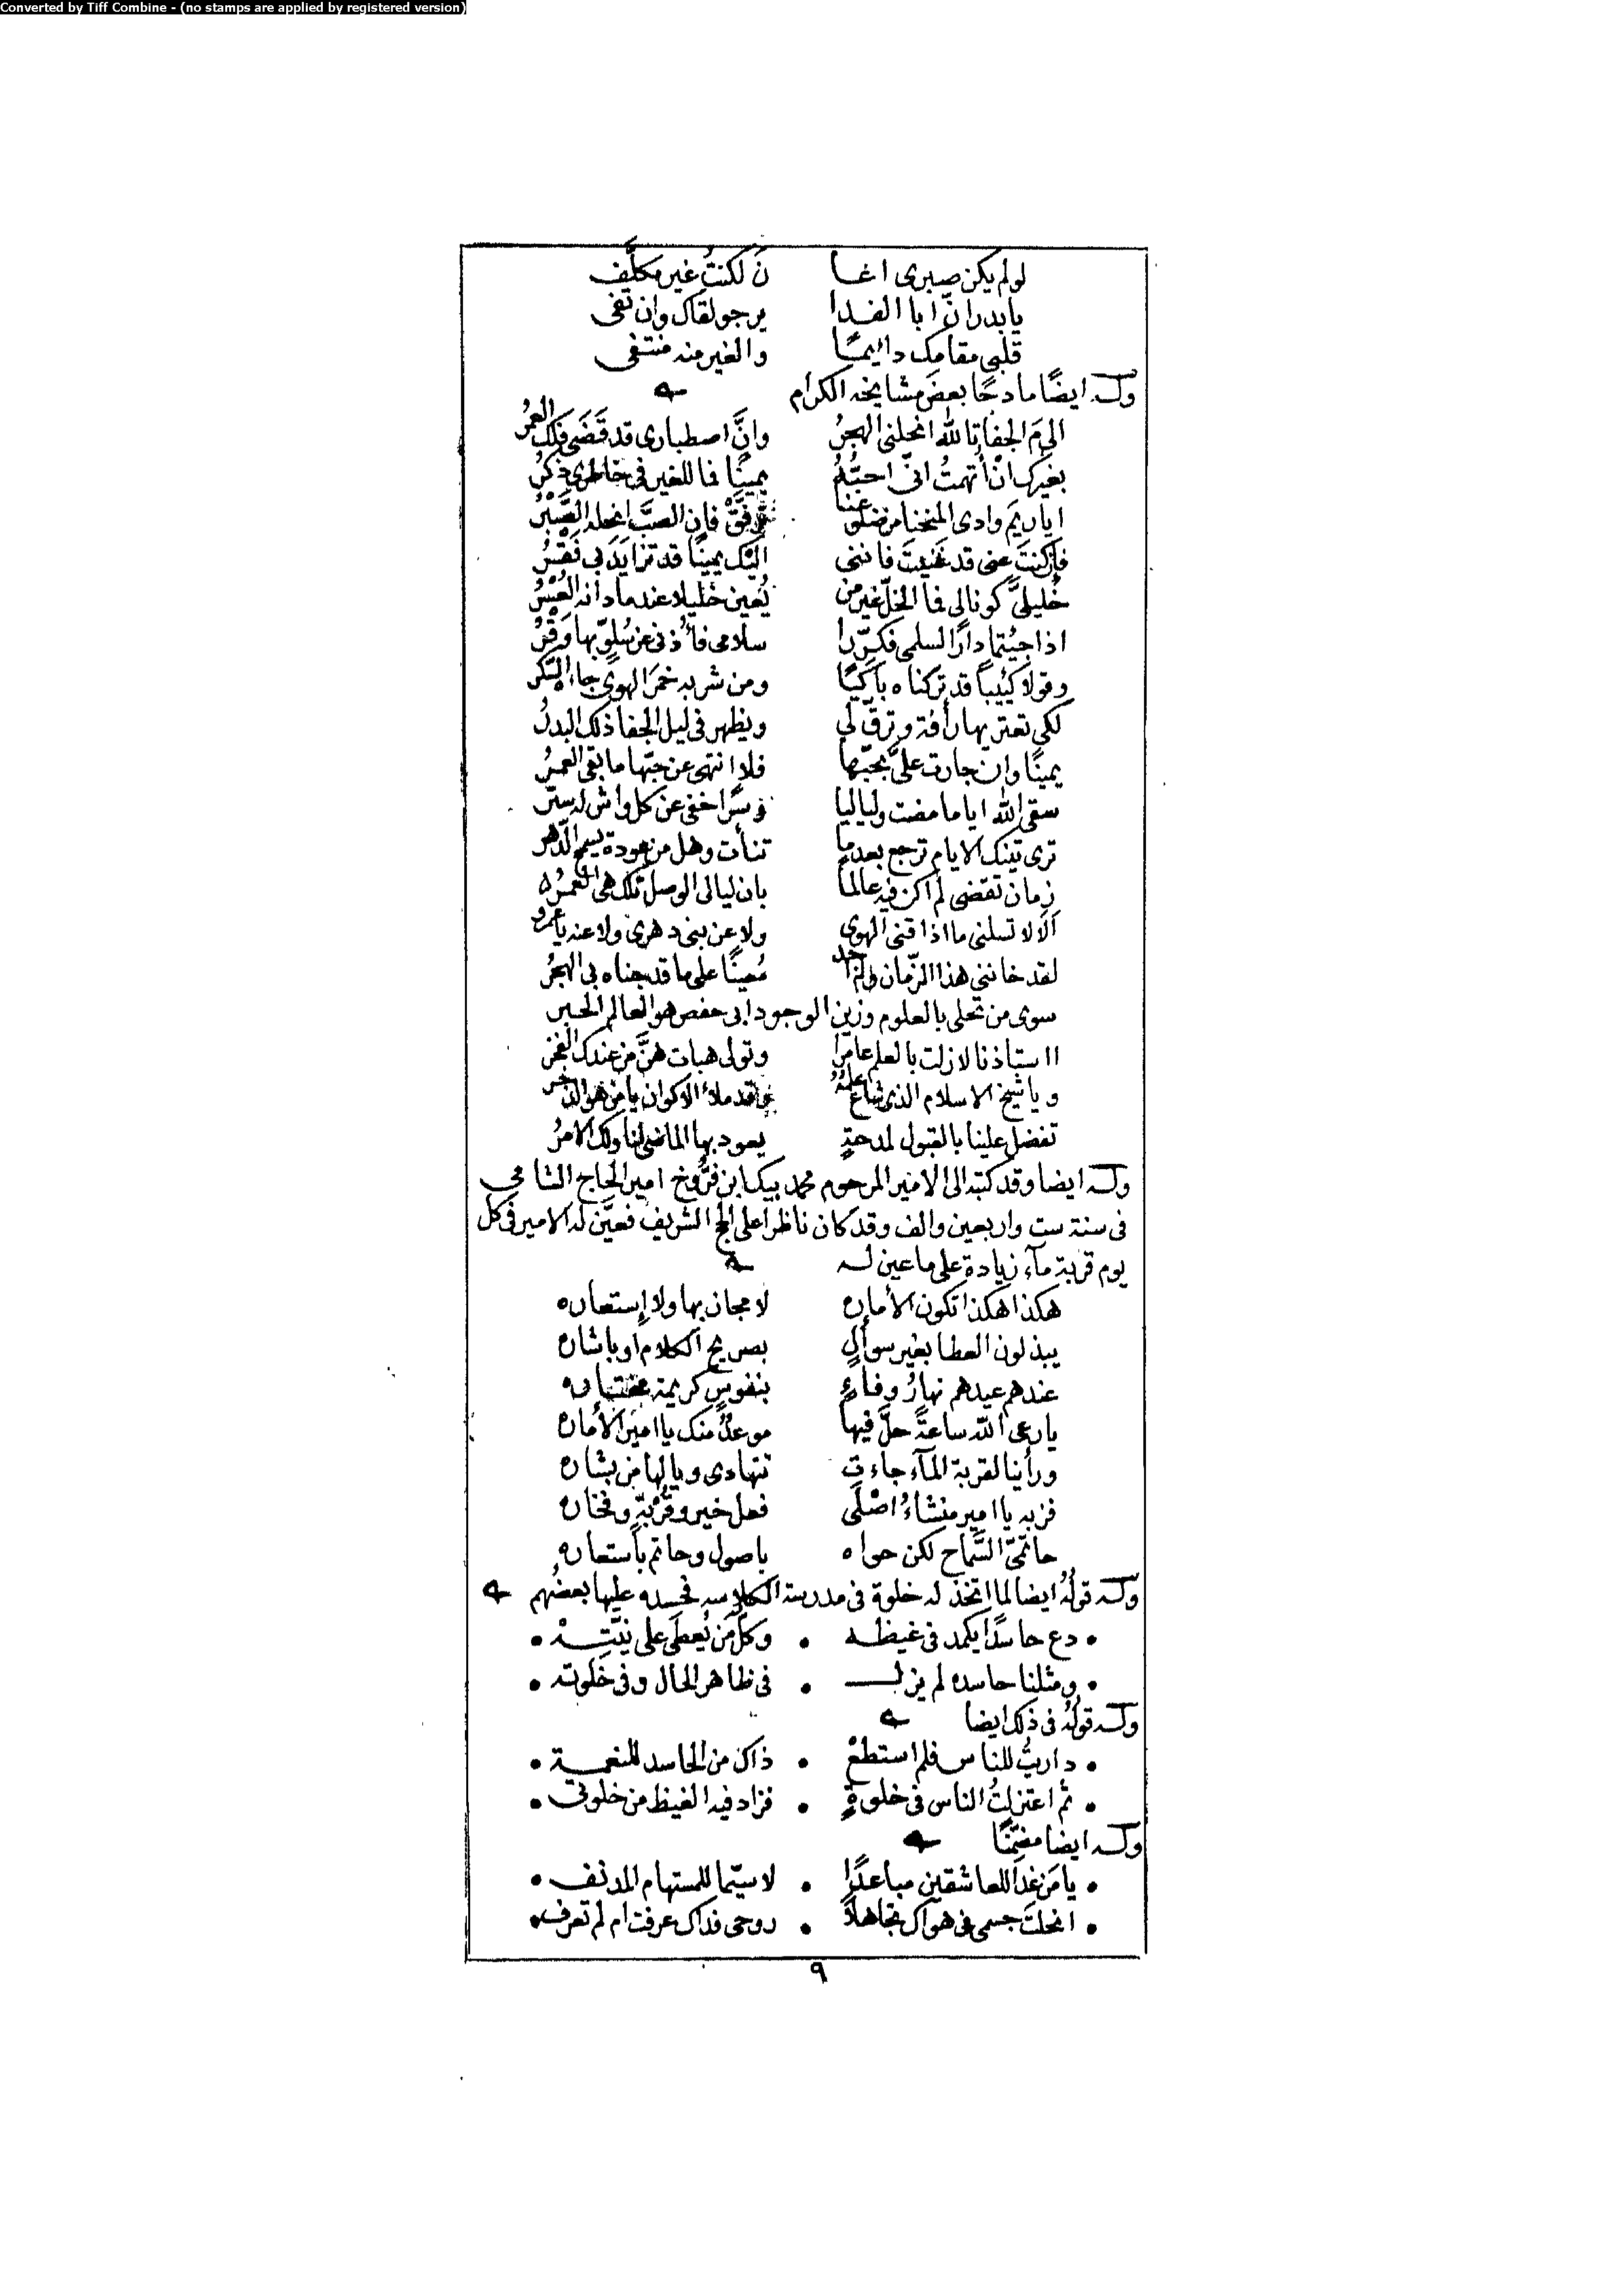 Converted by Tiff Combine - (no stamps are applied by registered version)
لو لم يكن صبرى اغا نَ لكنتُ غير مكلَّف
يا بدر انّ ابا الفدا يرجو لقاك وان تفى
قلبى مقامك دائيمًا والغير منه منتفى
وله ايضًا مادحًا بعضَ مشايخه الكرام
الىمَ الجفا تالله انحلنى الهجرُ وانَّ اصطبارى قد قَضَى فلك العمرُ
بغيرك ان اتهمتُ انىّ احبّهُ يمينًا فما للغير فى خاطرى ذكرُ
ايا ريم وادى المنحنا من ضلوعنا ترفقْ فإن الصبَّ انحله الصَّبْرُ
فإن كنتَ عنى قد غنيتَ فاننى اليْك يمينًا قد تزايدَ بى فَقْرُ
خليلىَّ كونا لى فما الخلّ غير من يُعين خليلا عندما دانه العُسْرُ
اذا جئتما دارًا لسلمى فكرّرا سلامى فأُذنى عن سُلوّ بها وَقْرُ
وقولا كئيباً قد تركناه باكيًا ومن شربه خمرَ الهوى جاءَ السّكر
لكى تعتريها رأفة وترقّ لى ويظهر فى ليل الجفا ذلك البدرُ
يمينًا وان جارت علىَّ بحبّها فلا انتهى عن حبّها ما بقى العمرُ
سقى الله اياما مضت ولياليا وسرًا خفى عن كل واش له ستر
ترى تينك الايام ترجع بعدما تنأت وهل من عودة يسمح الدّهر
زمان تقضى لم اكن فيه عالما بان ليالى الوصل تلك هى العمرُ
ألا لا تسلنى ما اذاقنى الهوى ولا عن بنى دهرى ولا عنه يا عمرو
لقد خاننى هذا الزّمان ولم اجد مُعينًا على ما قد جناه بى الهجرُ
سوى من تحلى بالعلوم وزين الوجود ابى حفص هو العالم الحبر
ااستاذنا لازلت بالعلم عامرًا وتولى هبات هنَّ من عندك الفخر
ويا شيخ الاسلام الذى شاع علمُهُ وقد ملأ الاكوان يا من هو البحر
تفضل علينا بالقبول لمدحةٍ يعود بها الماضى لنا ولك الامرُ
وله ايضا وقد كتبه الى الامير المرحوم محمد بيك ابن فرّوخ امير الحاج الشامى
فى سنة ست واربعين والف وقد كان ناظرا على الحج الشريف فعيَّن له الامير فى كل
يوم قربة مآء زيادة على ما عين له
هكذا هكذا تكون الأماره لا مجاز بها ولا إستعاره
يبذلون العطا بغير سوألٍ بصريح الكلام او باشاره
عندهم عيدهم نهارُ وفاءٍ بنفوسٍ كريمة مختاره
يا رعى الله ساعةً حلَّ فيها موعدٌ منك يا امير الأماره
ورأينا لقربة المآء جاءت تتهادى ويا لها من بشاره
فزبه يا امير منشاءُ اصْلى فعل خير وقُرْبةٍ وفخاره
حاتمىّ السَّماح لكن حواه باصول وحاتم باستعاره
وله قولُهُ ايضا لما اتخذ له خلوة فى مدرسة الكلاسه فحسده عليها بعضُهم
• دع حاسدًا يكمد فى غيظه • وكلّ مَن يُعطَى على نيّتِهْ •
• ومثلنا حاسده لم يزل • فى ظاهر الحال وفى خلوته •
وله قولُهُ فى ذلك ايضا
• داريتُ للناس فلم استطعْ • ذاك من الحاسد للنعمة •
• ثم اعتزلتُ الناس فى خلوةٍ • فزاد فيه الغيظ من خلوتى •
وله ايضا مضمّنًا
• يا مَن غدَا للعاشقين مباعدًا • لا سيّما للمستهام المدنف •
• انحلتَ جسمى فى هواك تجاهلاً • روحى فداك عرفت ام لم تعرف •
٩